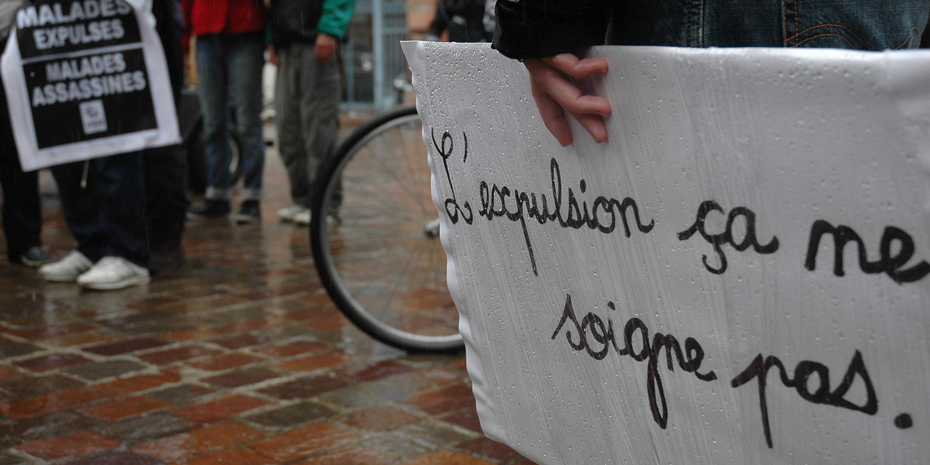 MALADES
EXPULSES
MALADES
ASSASSINES
L'expulsion ça me
soigne pas.